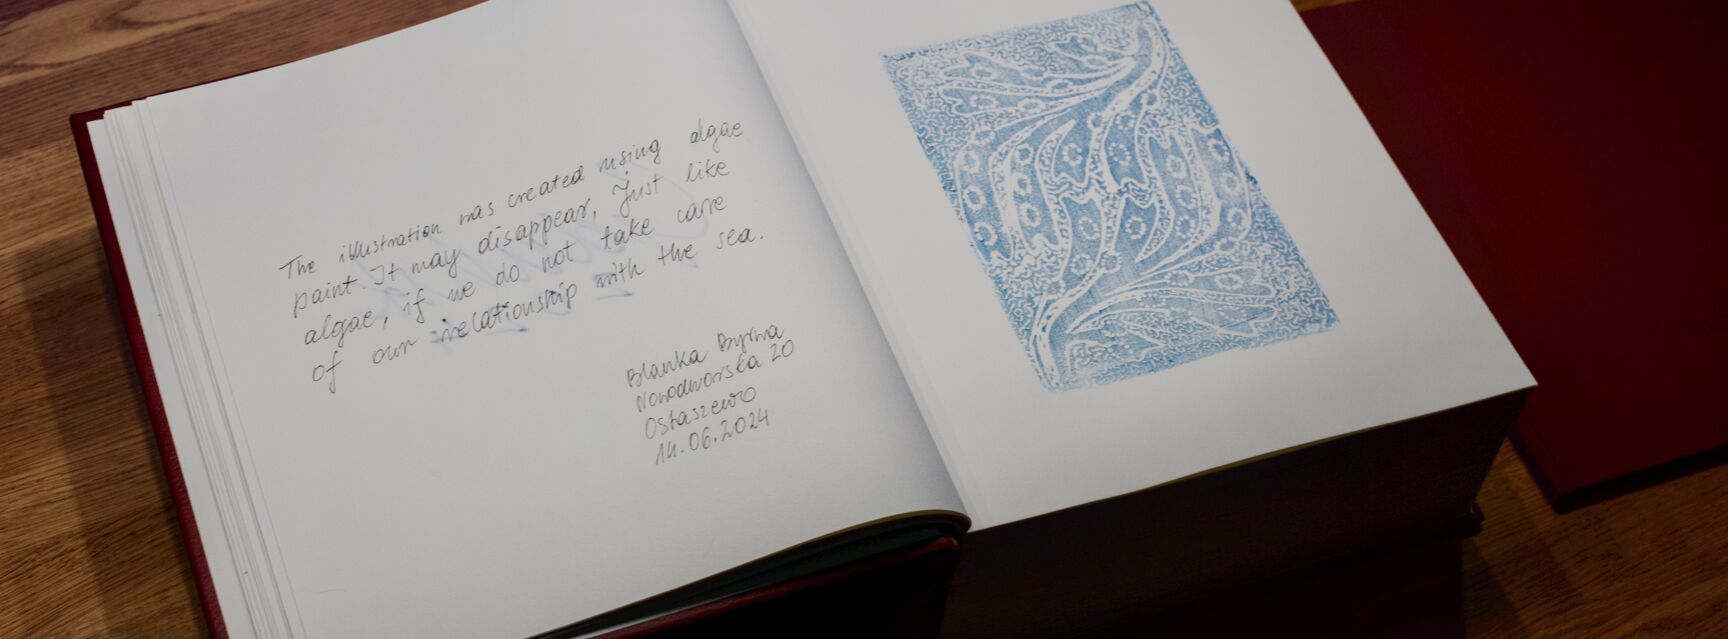 The illustration was created using algae
paint. It may disappear, just like
algae, if we do not take care
of our relationship with the sea.
Blanka Byrwa
Nowodworska 20
Ostaszewo
14.06.2024